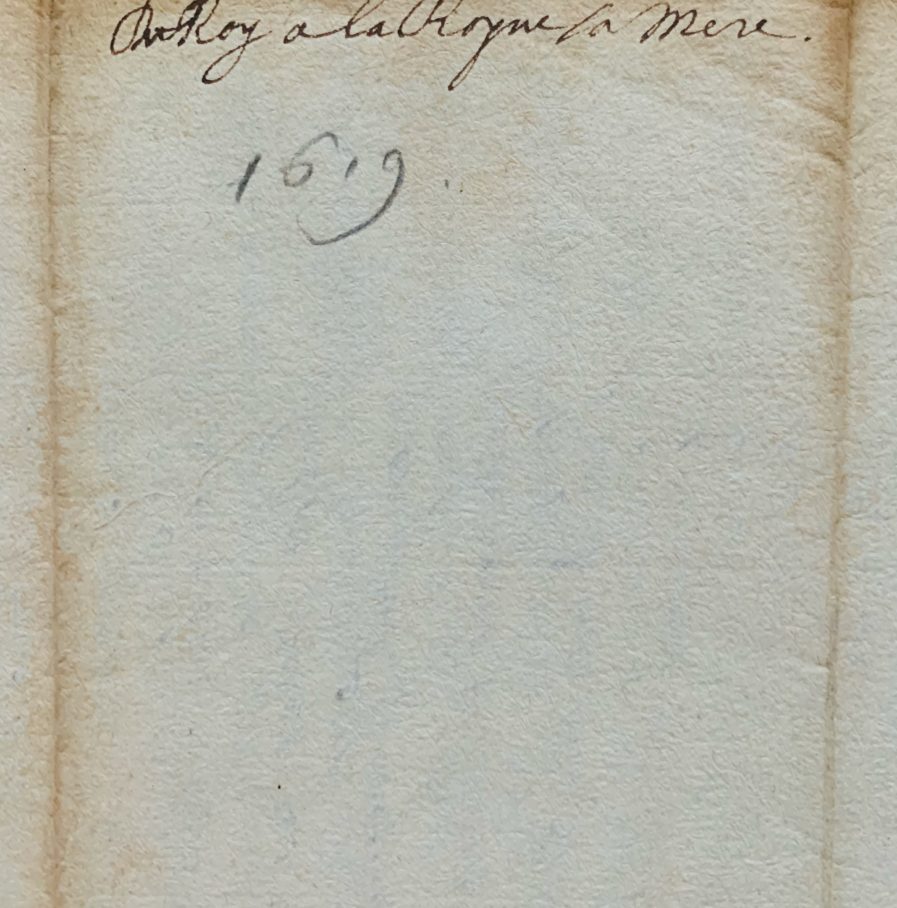 Du Roy a la Royne sa Mere.
1619.